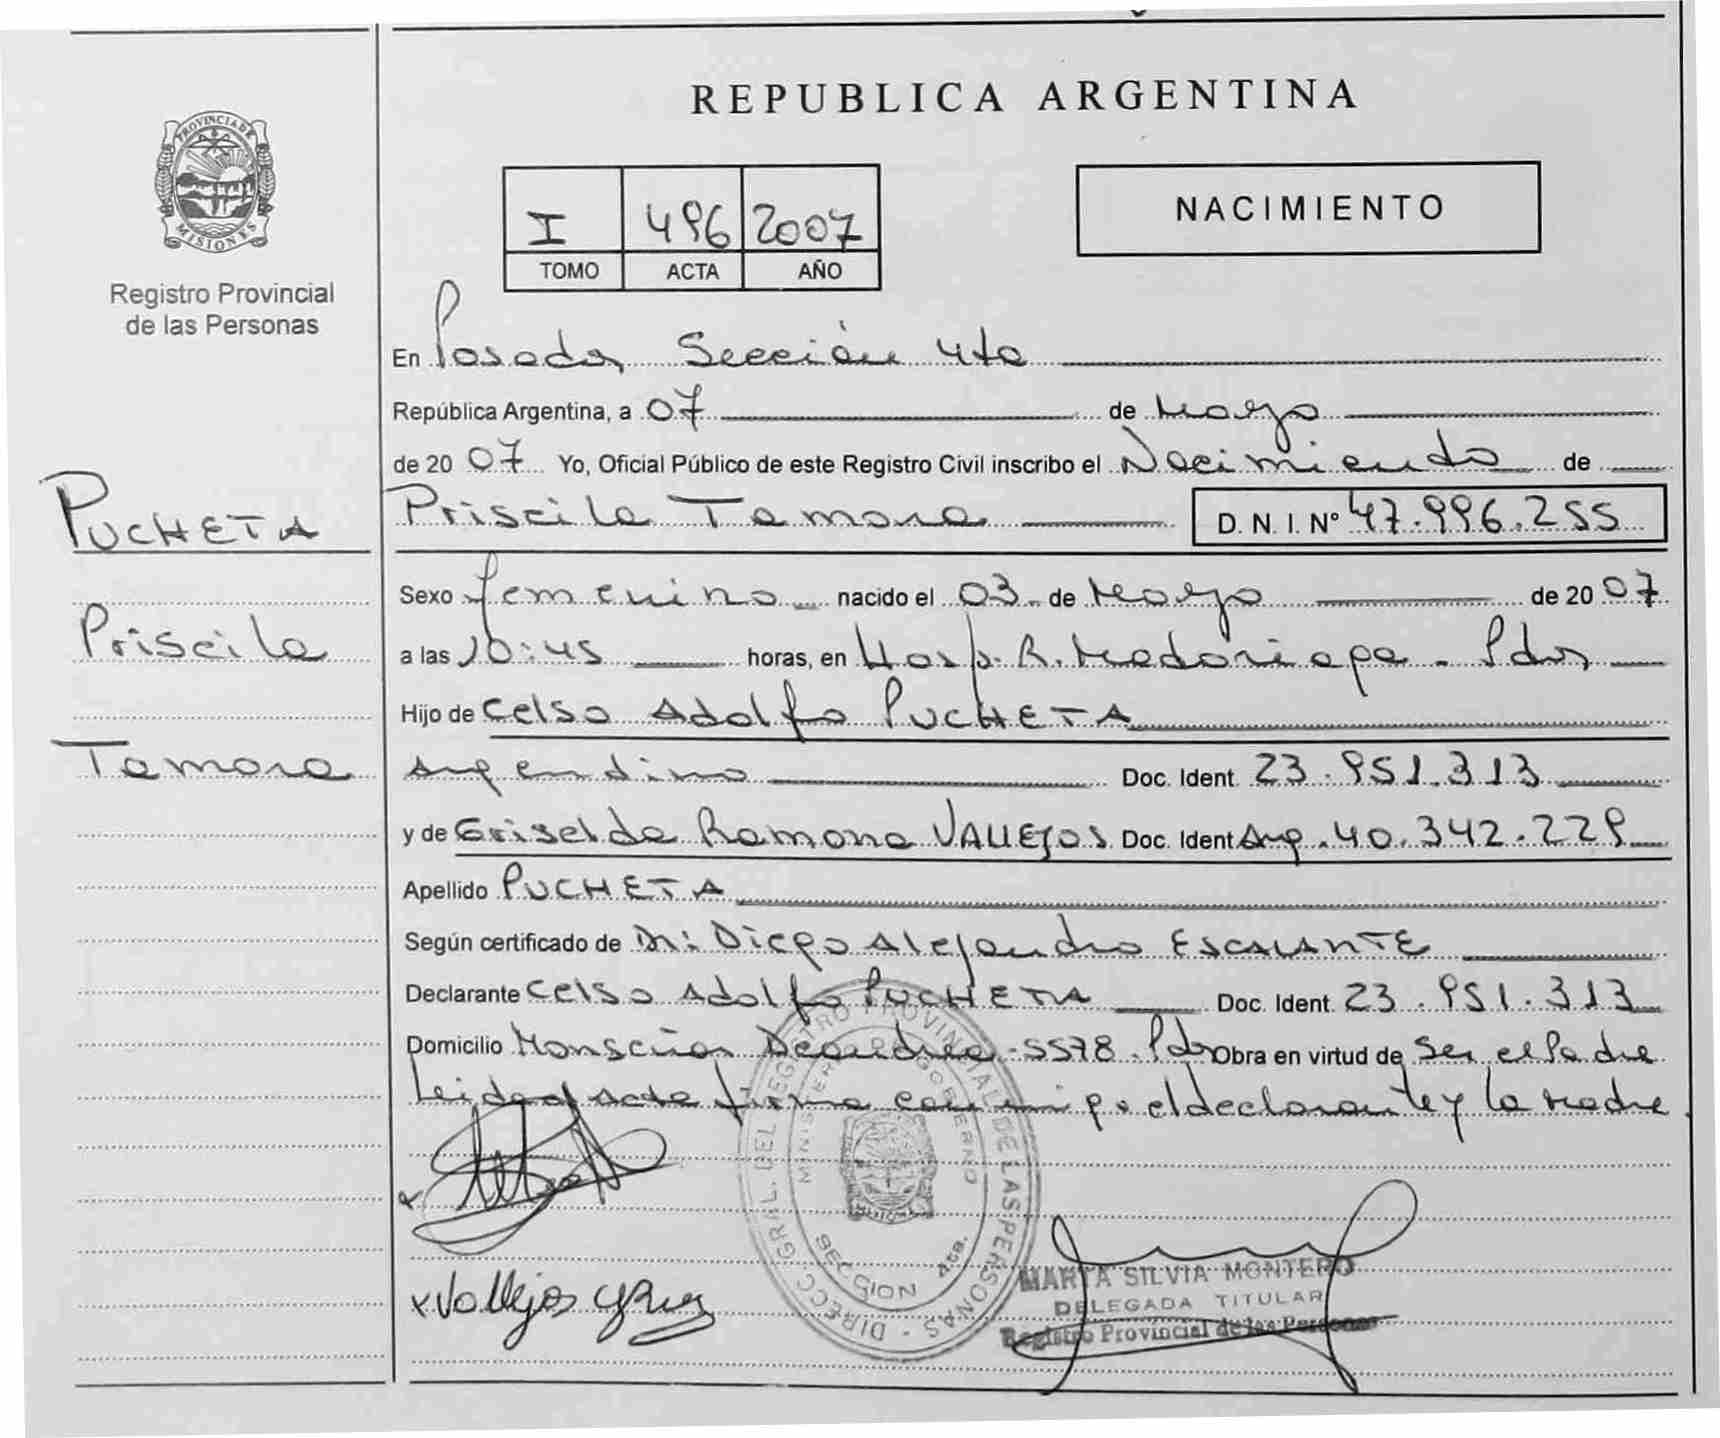 REPUBLICA ARGENTINA
PROVINCIA DE MISIONES
Registro Provincial
de las Personas
NACIMIENTO
I 496 2007
TOMO ACTA AÑO
En Posadas, Sección 4ta
República Argentina, a 07 de Mayo
de 20 07 Yo, Oficial Público de este Registro Civil inscribo el Nacimiento de
Priscila Tamara D. N. I. Nº 47.996.255
PUCHETA
Priscila
Tamara
Sexo femenino nacido el 03 de Mayo de 20 07
a las 10:45 horas, en Hosp. R. Madariaga - Pdas
Hijo de Celso Adolfo PUCHETA
Argentino Doc. Ident. 23.951.313
y de Griselda Ramona VALLEJOS Doc. Ident Arg. 40.342.229
Apellido PUCHETA
Según certificado de Dr: Diego Alejandro ESCALANTE
Declarante Celso Adolfo PUCHETA Doc. Ident. 23.951.313
Domicilio Monseñor Deandrea - 5578 - Pdas Obra en virtud de Ser el Padre
Leida el Acta firma conmigo el declarante y la Madre.
DIRECC. GRAL. DEL REGISTRO PROVINCIAL DE LAS PERSONAS
MINISTERIO DE GOBIERNO
SECCION 4ta.
x Vallejos
MARTA SILVIA MONTERO
DELEGADA TITULAR
Registro Provincial de las Personas